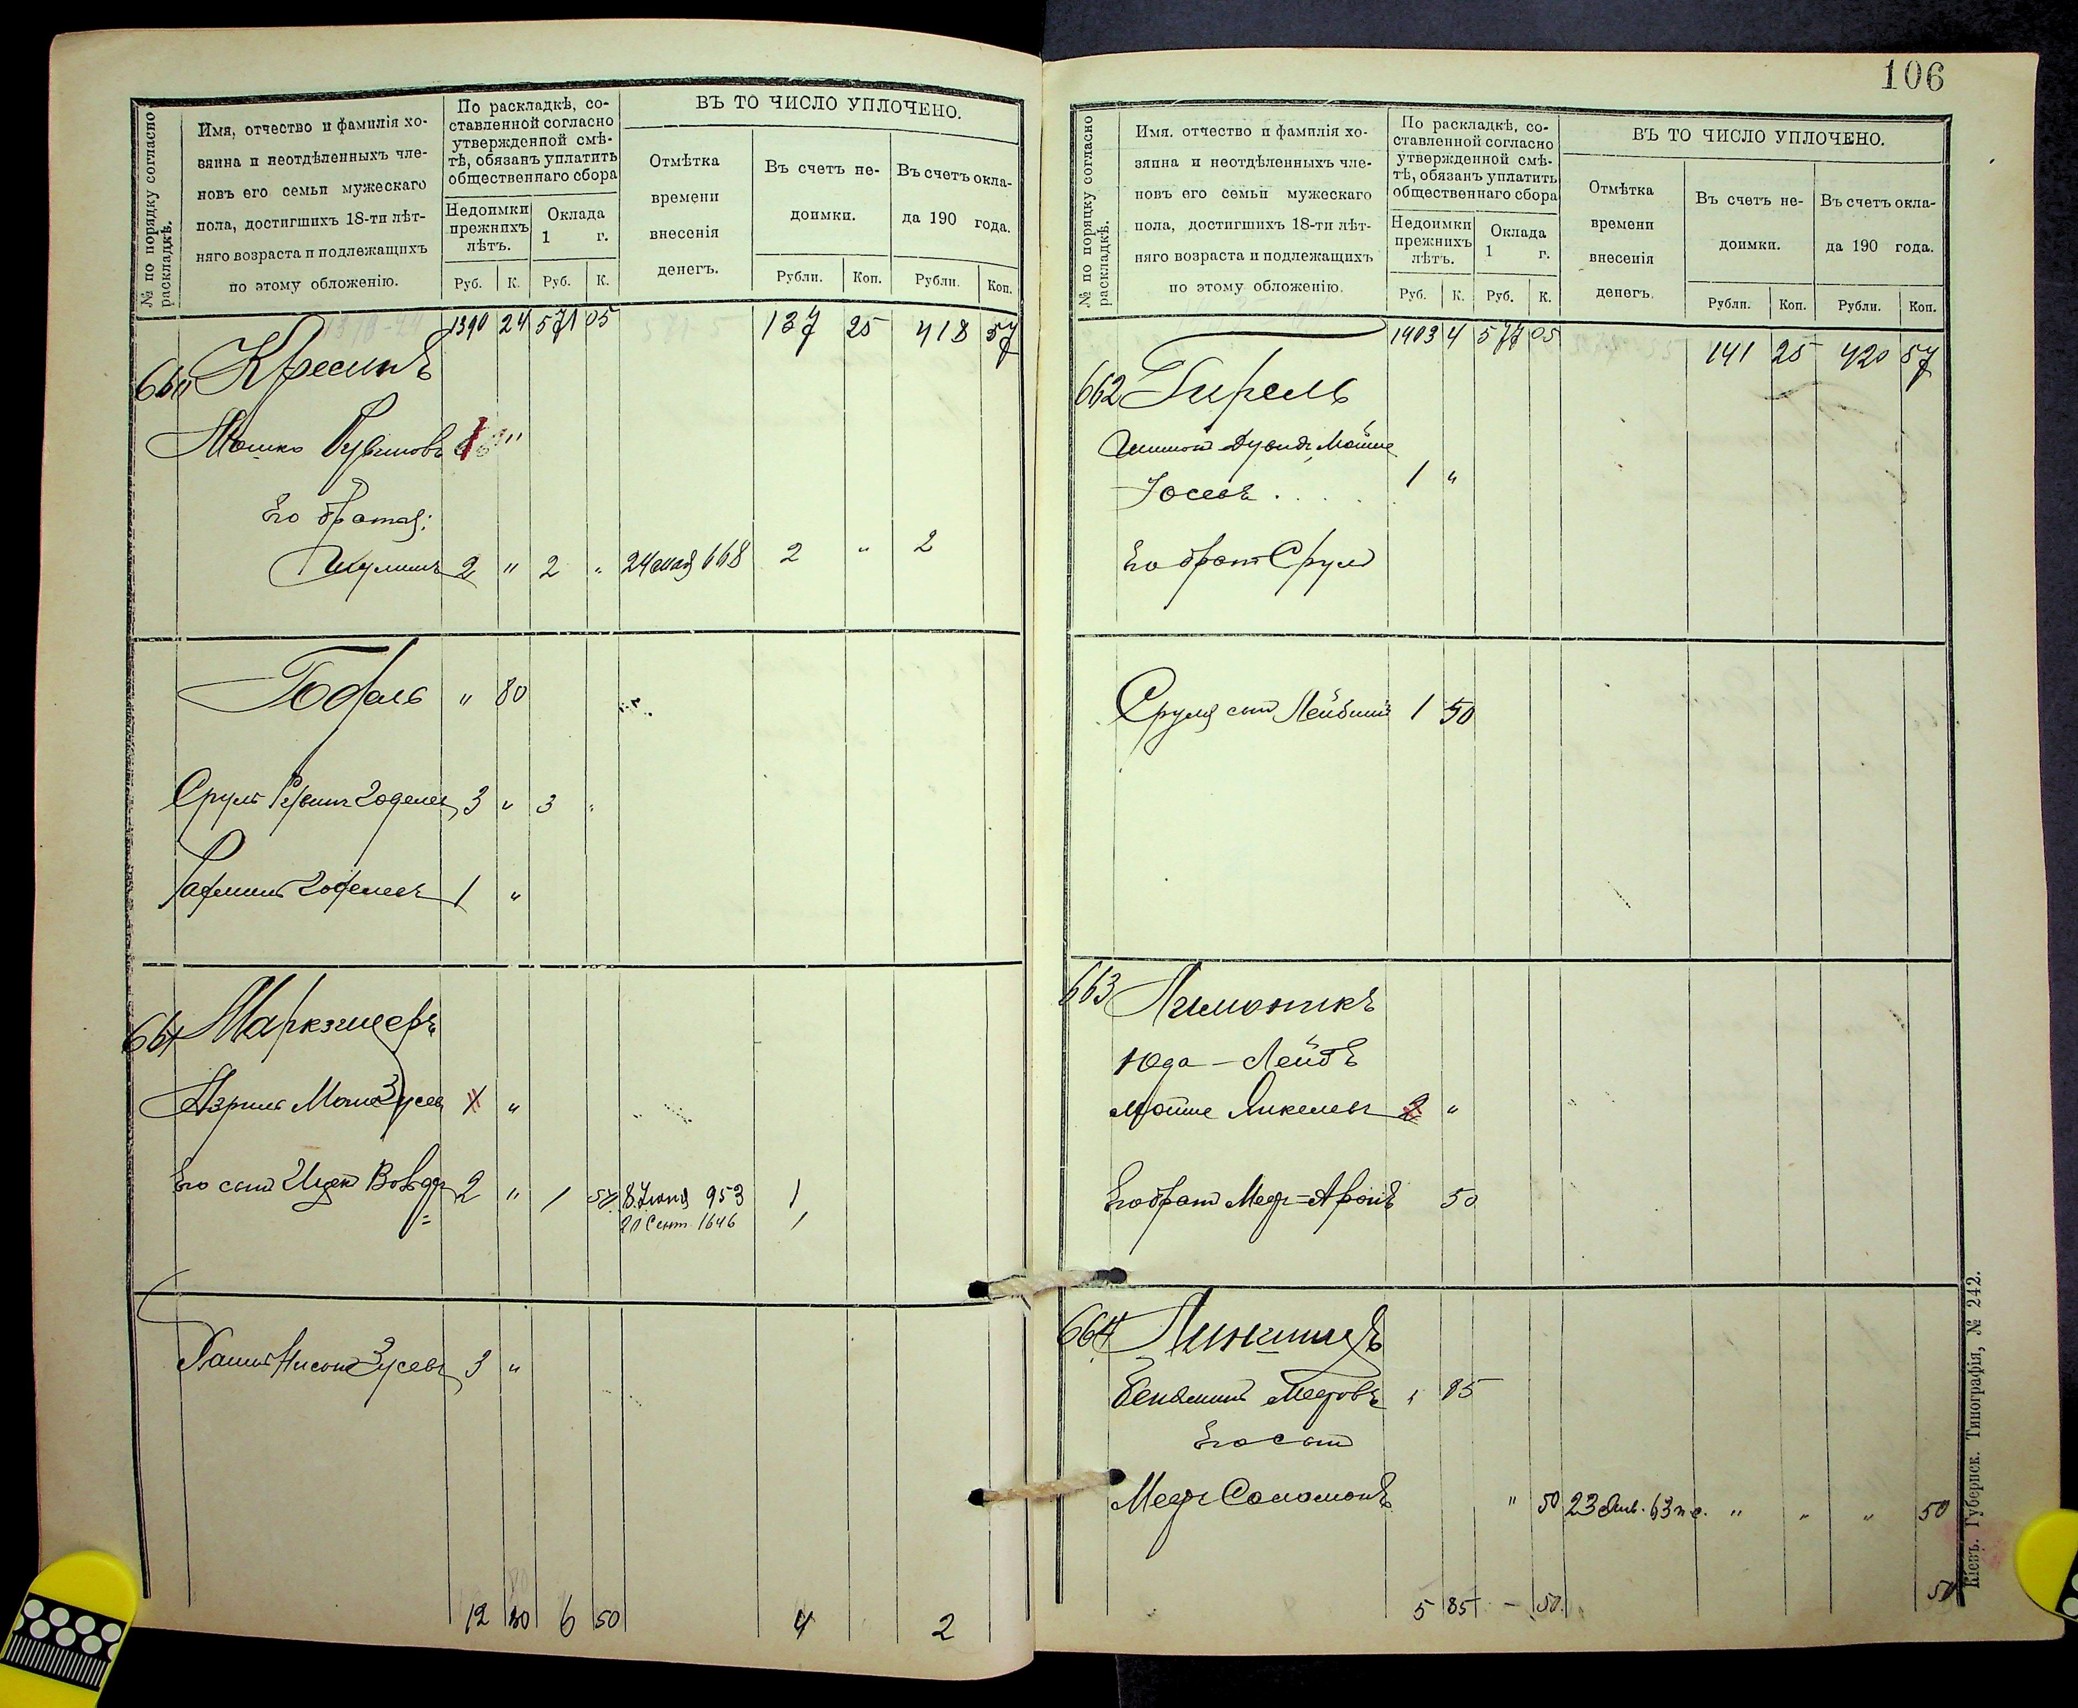 № по порядку согласно раскладкѣ.
Имя, отчество и фамилія хо-
зяина и неотдѣленныхъ чле-
новъ его семьи мужескаго
пола, достигшихъ 18-ти лѣт-
няго возраста и подлежащихъ
по этому обложенію.
По раскладкѣ, со-
ставленной согласно
утвержденной смѣ-
тѣ, обязанъ уплатить
общественнаго сбора
Недоимки
прежнихъ
лѣтъ.
Оклада
1 г.
Руб. К. Руб. К.
ВЪ ТО ЧИСЛО УПЛОЧЕНО.
Отмѣтка
времени
внесенія
денегъ.
Въ счетъ не-
доимки.
Въ счетъ окла-
да 190 года.
Рубли. Коп. Рубли. Коп.
1390 24 571 05 137 25 418 57
660 Кресинъ
Мошко Рувиновъ
Его братья:
Шулимъ 2 " 2 " 24 мая 668 2 " 2
Годель " 80
Сруль Рувинъ Годелев 3 " 3 "
Годелевъ 1 "
661 Маркзицеръ
Азриль Мош Зусев "
Его сынъ Ицек Вольф 2 " 1 50 8 Іюня 953 1
20 Сент. 1646 1
Нисон Зусевъ 3 "
12 80 6 50 4 2
106
№ по порядку согласно раскладкѣ.
Имя, отчество и фамилія хо-
зяина и неотдѣленныхъ чле-
новъ его семьи мужескаго
пола, достигшихъ 18-ти лѣт-
няго возраста и подлежащихъ
по этому обложенію.
По раскладкѣ, со-
ставленной согласно
утвержденной смѣ-
тѣ, обязанъ уплатить
общественнаго сбора
Недоимки
прежнихъ
лѣтъ.
Оклада
1 г.
Руб. К. Руб. К.
ВЪ ТО ЧИСЛО УПЛОЧЕНО.
Отмѣтка
времени
внесенія
денегъ.
Въ счетъ не-
доимки.
Въ счетъ окла-
да 190 года.
Рубли. Коп. Рубли. Коп.
1403 4 577 05 141 25 420 57
662 Гирель
Дувидъ Мойше
Іосевъ 1 "
Его брат Срул
Сруля сын Лейбишъ 1 50
663 Лимоникъ
Юда-Лейбъ
Мойше Янкелевъ 2 "
Его брат Меер=Аронъ 50
664
Беньямин Мееровъ " 85
Его сын
Меер Соломонъ " 50 23 Янв. 63 " " " 50
5 85 - 50 50
Кіевъ. Губернск. Типографія, № 242.